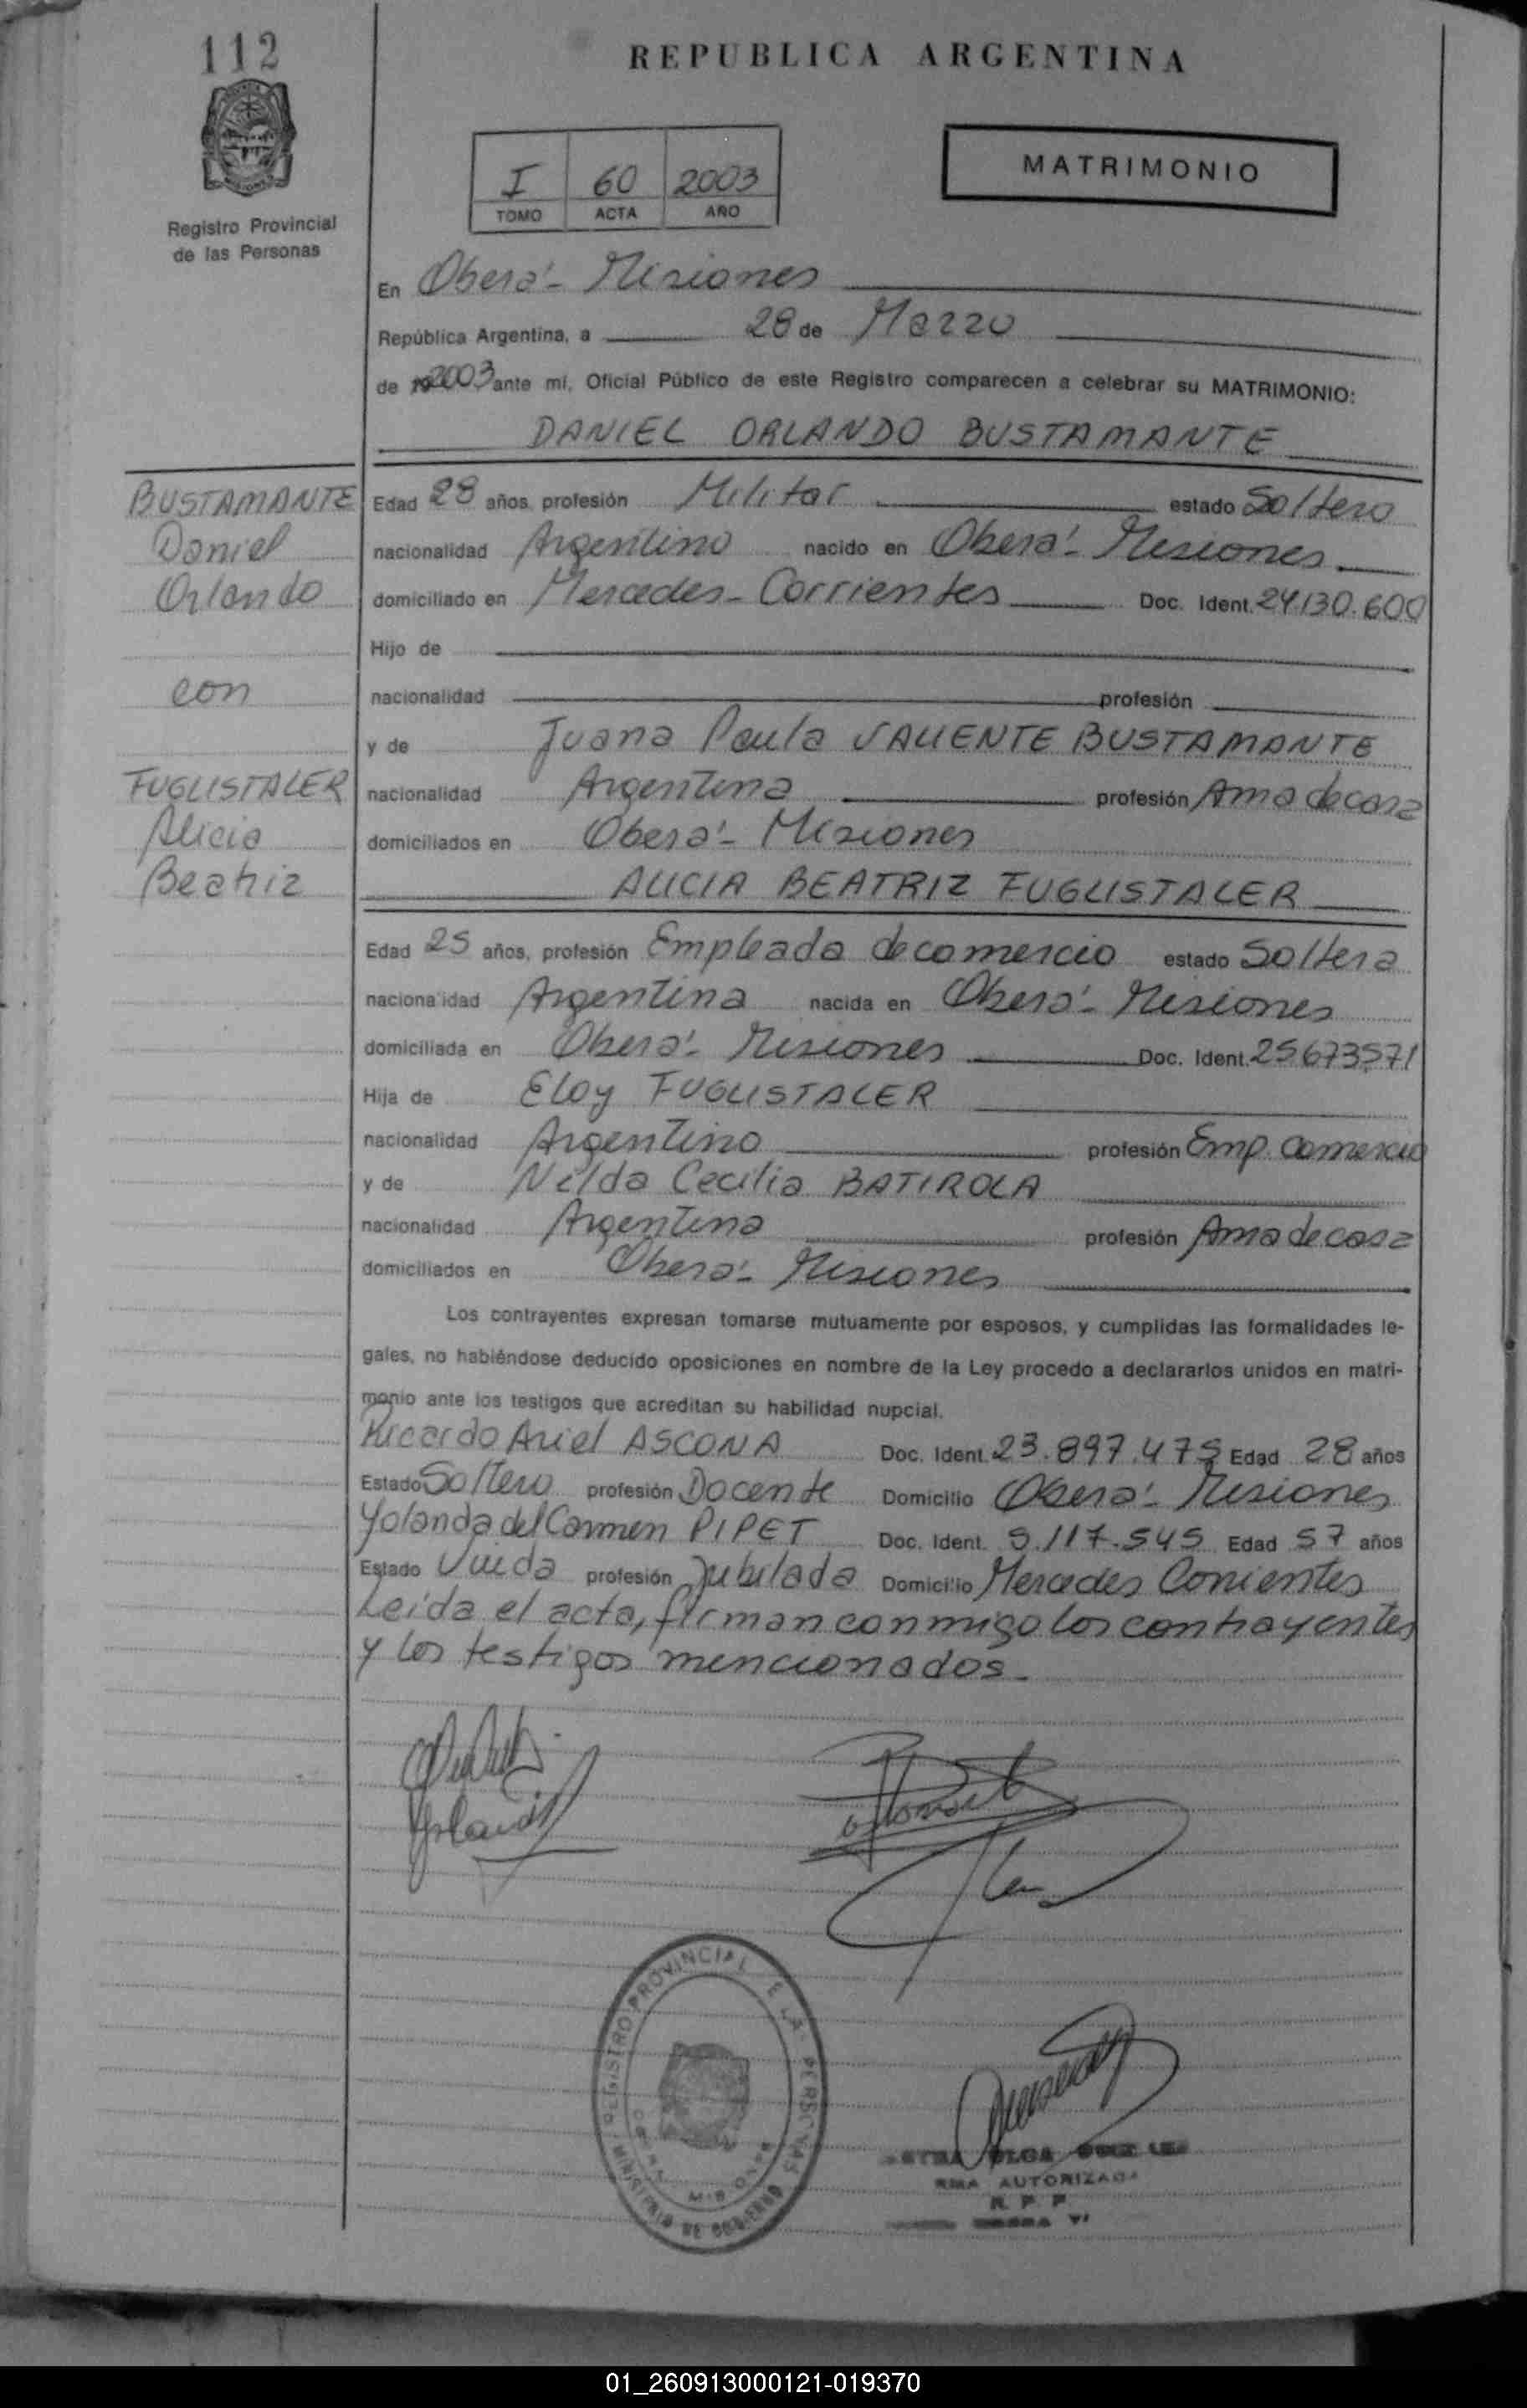 112
REPUBLICA ARGENTINA
I 60 2003
TOMO ACTA AÑO
MATRIMONIO
Registro Provincial
de las Personas
En Oberá - Misiones
República Argentina, a 28 de Marzo
de 2003 ante mí, Oficial Público de este Registro comparecen a celebrar su MATRIMONIO:
DANIEL ORLANDO BUSTAMANTE
BUSTAMANTE
Daniel
Orlando
con
FUGLISTALER
Alicia
Beatriz
Edad 28 años, profesión Militar estado Soltero
nacionalidad Argentino nacido en Oberá - Misiones
domiciliado en Mercedes - Corrientes Doc. Ident. 24.130.600
Hijo de
nacionalidad profesión
y de Juana Paula VALIENTE BUSTAMANTE
nacionalidad Argentina profesión Ama de casa
domiciliados en Oberá - Misiones
ALICIA BEATRIZ FUGLISTALER
Edad 25 años, profesión Empleada de comercio estado Soltera
nacionalidad Argentina nacida en Oberá - Misiones
domiciliada en Oberá - Misiones Doc. Ident. 25673571
Hija de Eloy FUGLISTALER
nacionalidad Argentino profesión Emp. Comercio
y de Nilda Cecilia BATIROLA
nacionalidad Argentina profesión Ama de casa
domiciliados en Oberá - Misiones
Los contrayentes expresan tomarse mutuamente por esposos, y cumplidas las formalidades le-
gales, no habiéndose deducido oposiciones en nombre de la Ley procedo a declararlos unidos en matri-
monio ante los testigos que acreditan su habilidad nupcial.
Ricardo Ariel ASCONA Doc. Ident. 23.897.475 Edad 28 años
Estado Soltero profesión Docente Domicilio Oberá - Misiones
Yolanda del Carmen PIPET Doc. Ident. 5.117.545 Edad 57 años
Estado Viuda profesión Jubilada Domicilio Mercedes Corrientes
Leída el acta, firman conmigo los contrayentes
y los testigos mencionados.
REGISTRO PROVINCIAL DE LAS PERSONAS
MINISTERIO DE GOBIERNO
OLGA
AUTORIZADA
R. P. P.
01_260913000121-019370